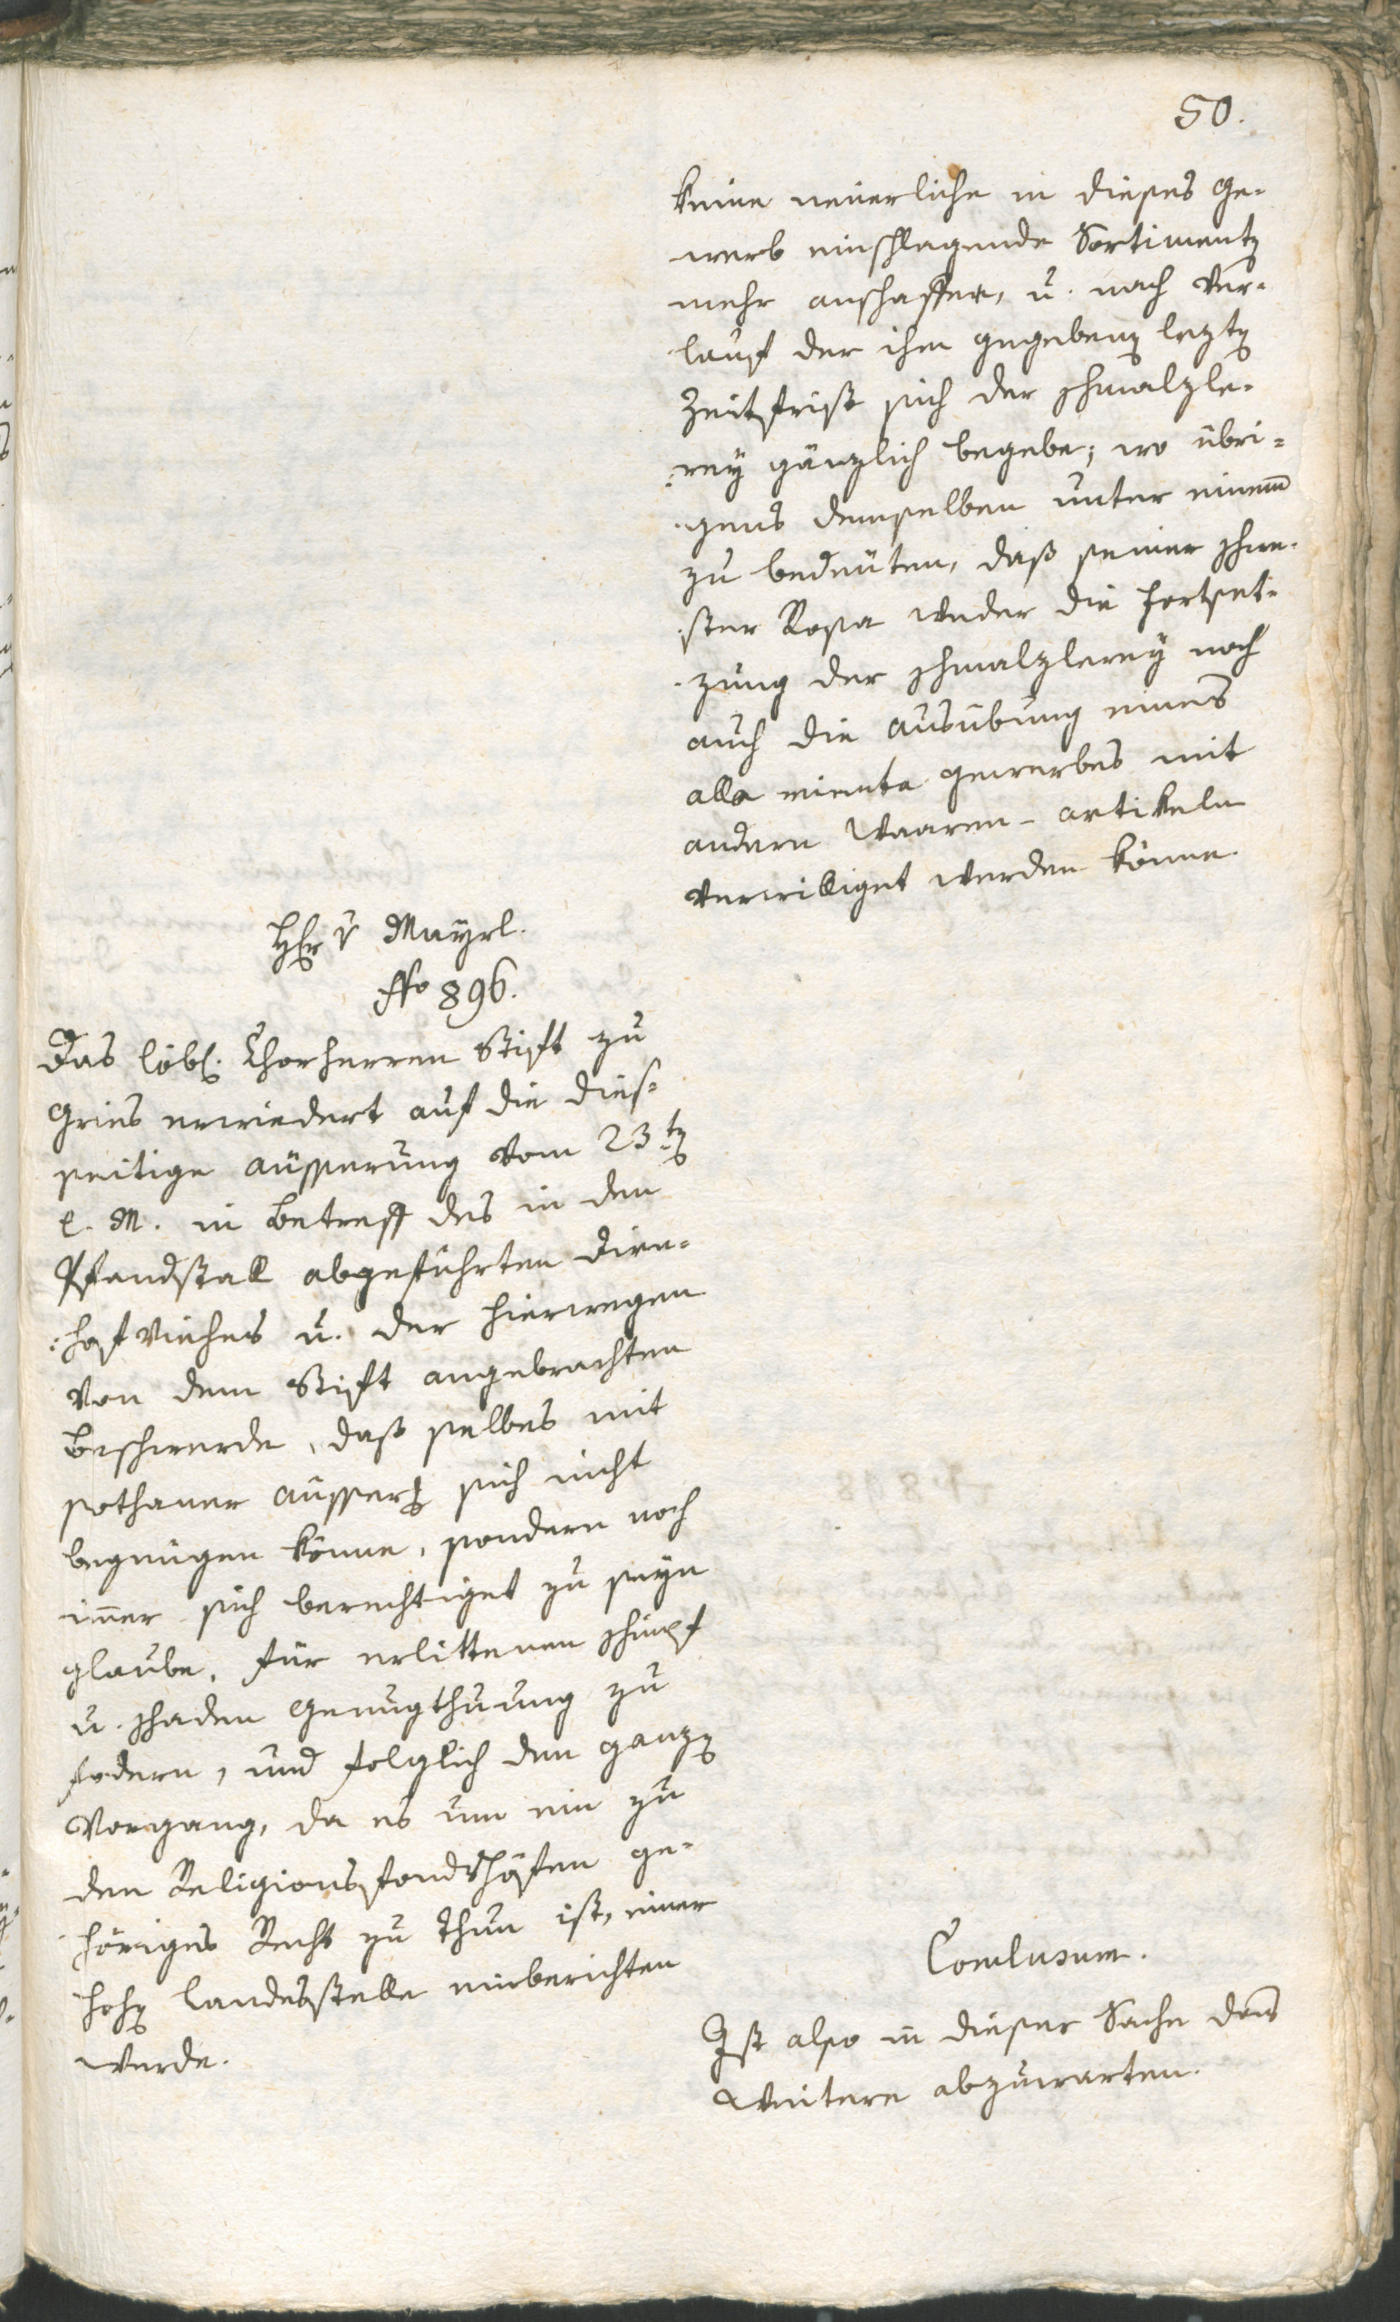 50.
keine neuerliche in dieses Ge-
werb einschlagende Sortimente
mehr anschaffen, u. nach Ver-
lauf der ihm gegebenen lezten
Zeitfrist sich der Schmalzle-
rey gänzlich begebe; wo übri-
gens demselben unter einem
zu bedeuten, daß seiner Schwe-
ster Rosa weder die Fortset-
zung der Schmalzlerey noch
auch die Ausübung eines
alla minuta Gewerbes mit
andern Waaren-artikeln
verwilliget werden könne.
Hr v Mayrl.
Nro 896.
Das löbl. Chorherren Stift zu
Gries erwiedert auf die dies-
seitige Äusserung vom 23ten
l. M. in Betreff des in den
Pfandstall abgeführten Dire-
hof Viehes u. der hierwegen
von dem Stift angebrachten
Beschwerde, daß selbes mit
sothaner Äusserung sich nicht
begnügen könne, sondern noch
immer sich berechtiget zu seyn
glaube, für erlittenen Schimpf
u. Schaden Genugthuung zu
fodern, und folglich den ganzen
Vorgang, da es um ein zu
den Religionsfondshöfen ge-
höriges Recht zu thun ist, einer
hohen Landesstelle einberichten
werde.
Conclusum.
Ist also in dieser Sache das
Weitere abzuwarten.